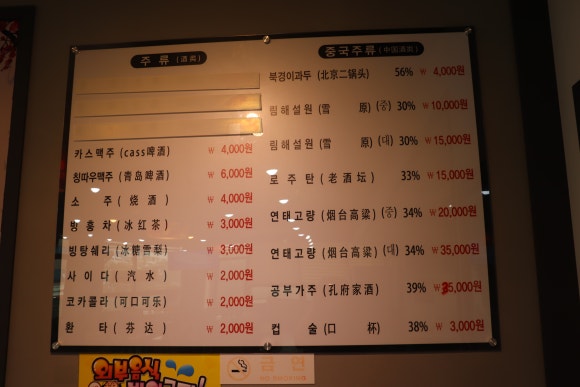 주 류 (酒类)
카스맥주 (cass啤酒) ₩ 4,000원
칭따우맥주 (青岛啤酒) ₩ 6,000원
소 주 (烧 酒) ₩ 4,000원
빙 홍 차 (冰 红 茶) ₩ 3,000원
빙탕쉐리 (冰糖雪梨) ₩ 3,000원
사 이 다 (汽 水) ₩ 2,000원
코카콜라 (可口可乐) ₩ 2,000원
환 타 (芬 达) ₩ 2,000원
중국주류 (中国酒类)
북경이과두 (北京二锅头) 56% ₩ 4,000원
림해설원 (雪 原) (중) 30% ₩ 10,000원
림해설원 (雪 原) (대) 30% ₩ 15,000원
로 주 탄 (老 酒 坛) 33% ₩ 15,000원
연태고량 (烟台高粱) (중) 34% ₩ 20,000원
연태고량 (烟台高粱) (대) 34% ₩ 35,000원
공부가주 (孔府家酒) 39% ₩ 35,000원
컵 술 (口 杯) 38% ₩ 3,000원
외부음식
금 연